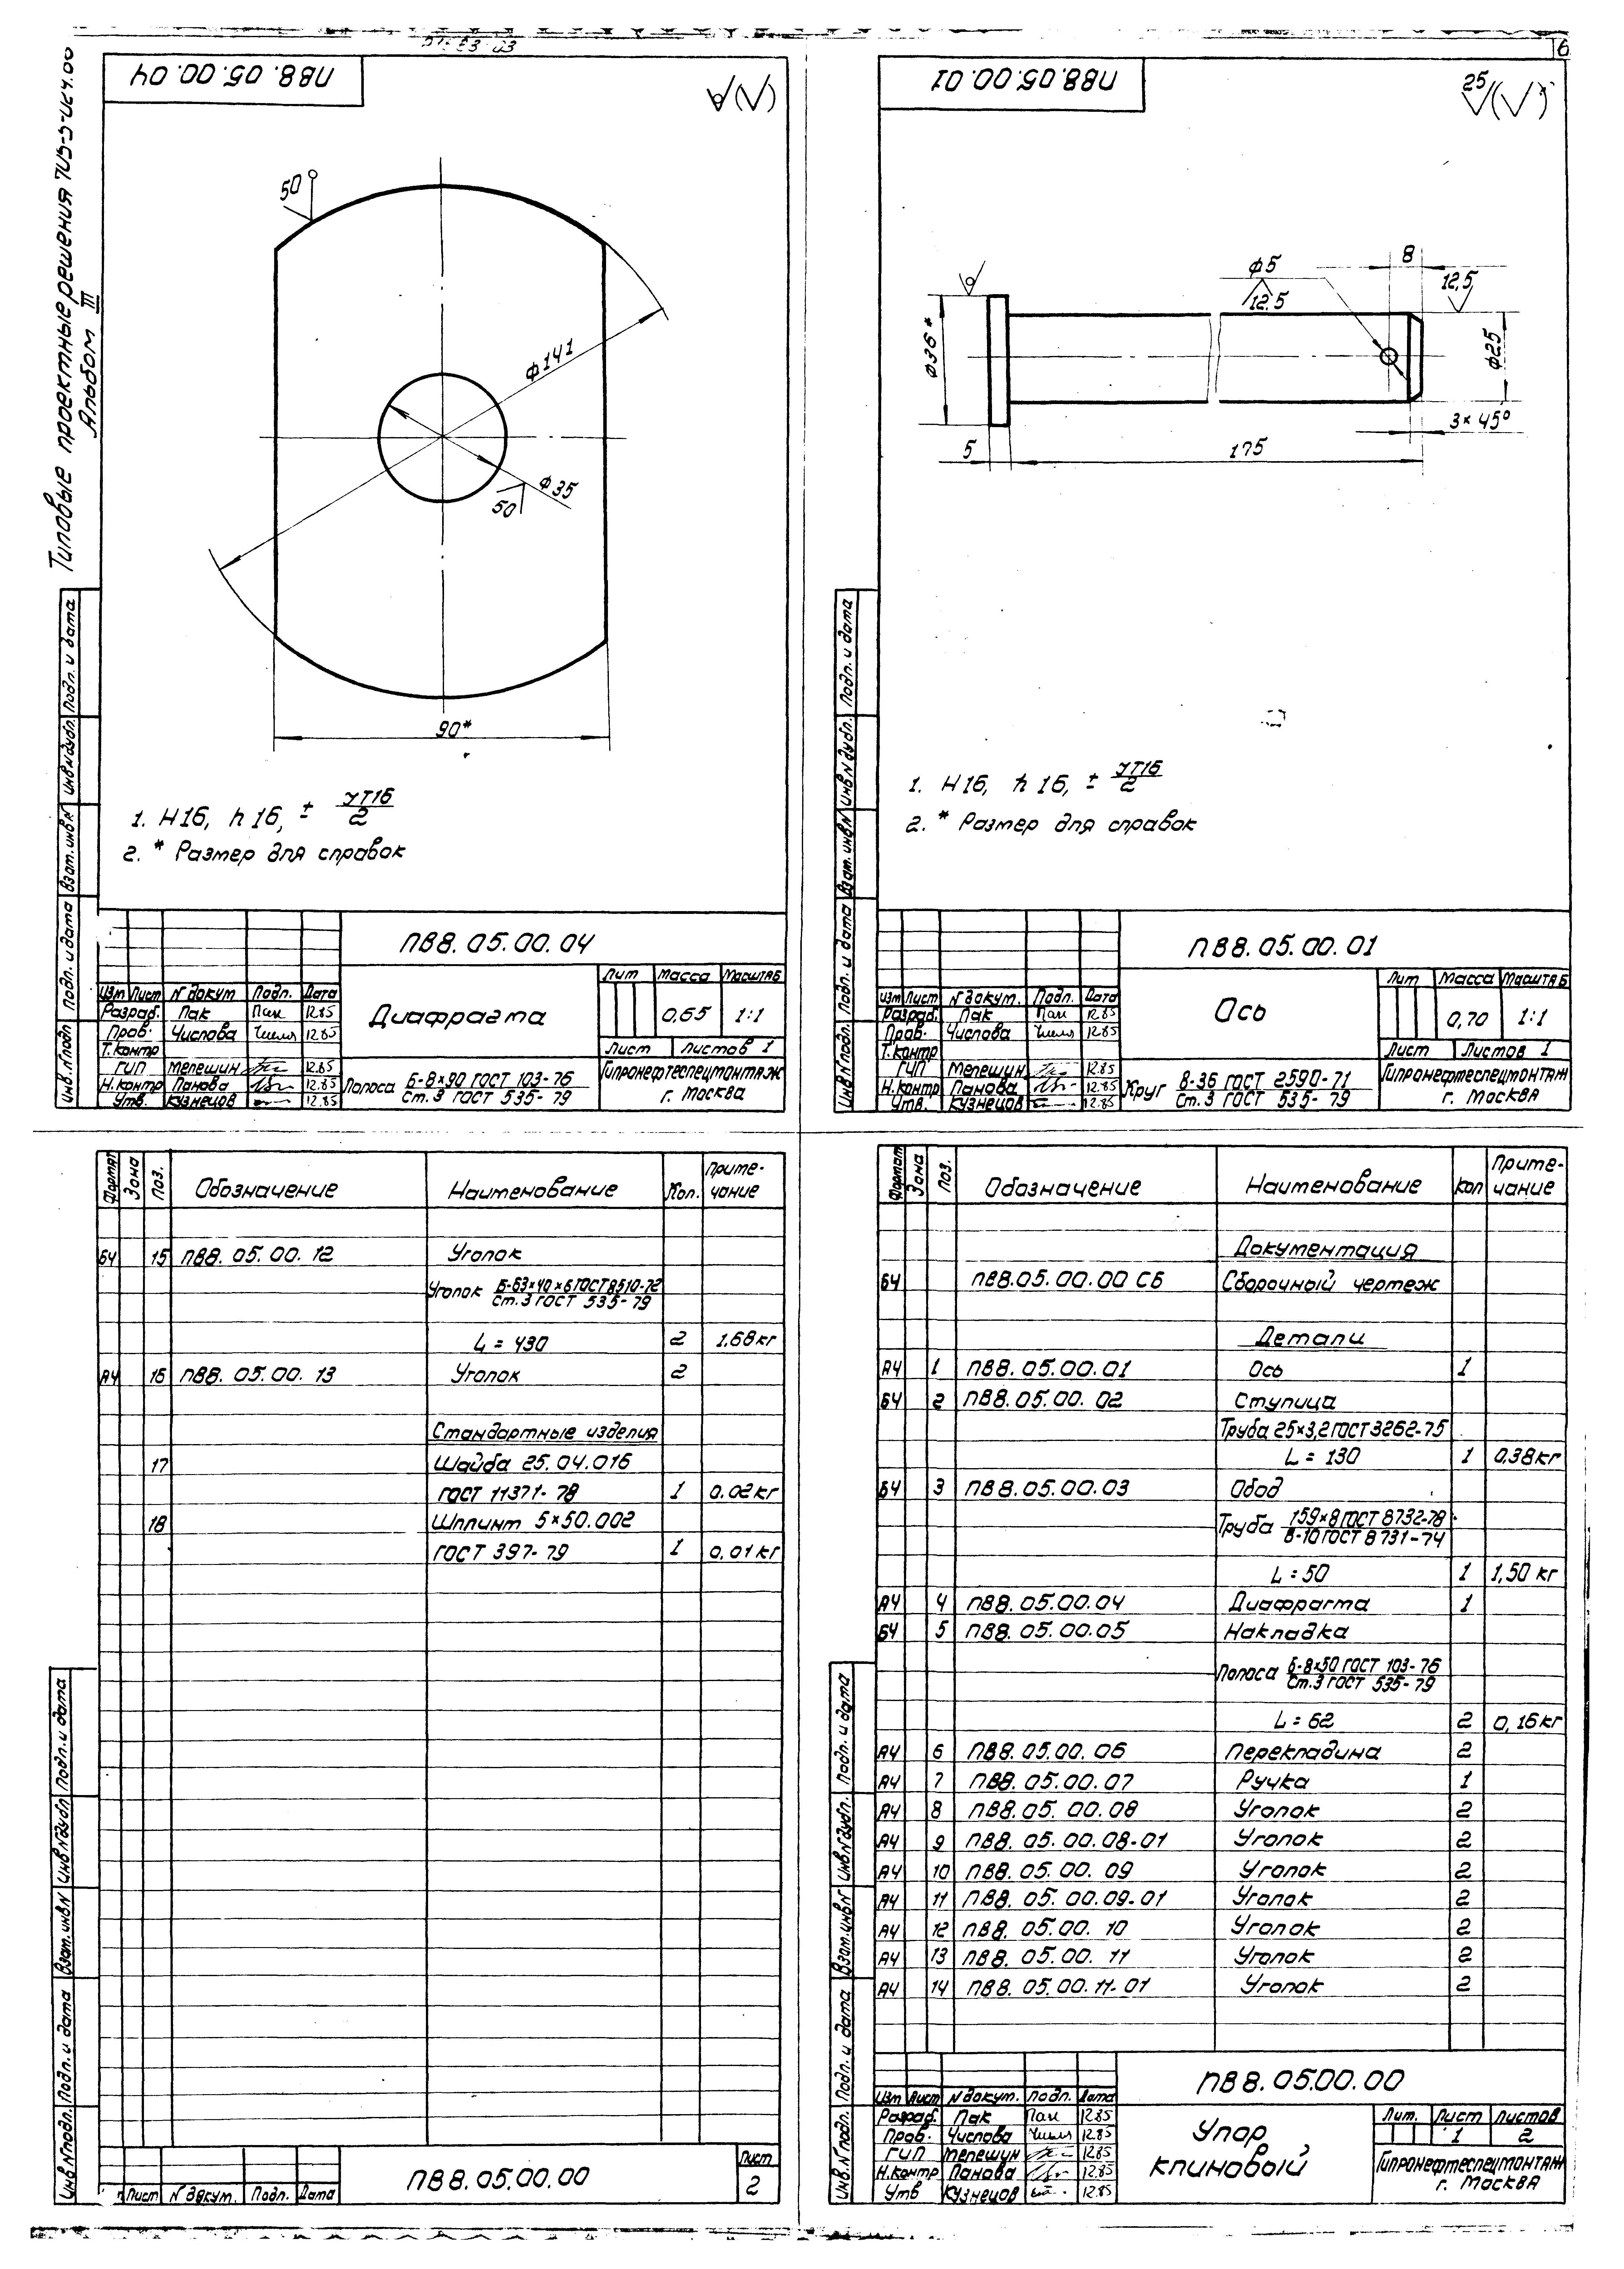 Типовые проектные решения
Альбом III
ПВ8.05.00.04
50
ф141
ф35
50
90*
1. H16, h16, ± УТ16/2
2. * Размер для справок
Инв.N подл. Подп. и дата Взам.инв.N Инв.N дубл. Подп. и дата
ПВ8.05.00.04
Изм Лист N докум Подп. Дата
Разраб. Пак Пак 12.85
Пров. Числова 12.85
Т.контр
ГИП Мелешин 12.85
Н.контр Панова 12.85
Утв. Кузнецов 12.85
Диафрагма
Лит Масса Масштаб
0,65 1:1
Лист Листов 1
Полоса Б-8×90 ГОСТ 103-76
Ст.3 ГОСТ 535-79
Гипронефтеспецмонтаж
г. Москва
6
ПВ8.05.00.01
25
ф5
12.5
8
12,5
ф36*
ф25
3×45°
5
175
1. H16, h16, ± УТ16/2
2. * Размер для справок
Инв.N подл. Подп. и дата Взам.инв.N Инв.N дубл. Подп. и дата
ПВ8.05.00.01
Изм Лист N докум. Подп. Дата
Разраб. Пак Пак 12.85
Пров. Числова 12.85
Т.контр
ГИП Мелешин 12.85
Н.контр Панова 12.85
Утв. Кузнецов 12.85
Ось
Лит Масса Масштаб
0,70 1:1
Лист Листов 1
Круг В-36 ГОСТ 2590-71
Ст.3 ГОСТ 535-79
Гипронефтеспецмонтаж
г. Москва
Формат Зона Поз. Обозначение Наименование Кол. Примечание
БЧ 15 ПВ8.05.00.12 Уголок
Уголок Б-63×40×6 ГОСТ 8510-72
Ст.3 ГОСТ 535-79
L = 430 2 1.68кг
А4 16 ПВ8.05.00.13 Уголок 2
Стандартные изделия
17 Шайба 25.04.016
ГОСТ 11371-78 1 0.02кг
18 Шплинт 5×50.002
ГОСТ 397-79 1 0,01кг
Инв.N подл. Подп. и дата Взам.инв.N Инв.N дубл. Подп. и дата
Лист N докум. Подп. Дата
ПВ8.05.00.00
Лист
2
Формат Зона Поз. Обозначение Наименование Кол Примечание
Документация
БЧ ПВ8.05.00.00 СБ Сборочный чертеж
Детали
А4 1 ПВ8.05.00.01 Ось 1
БЧ 2 ПВ8.05.00.02 Ступица
Труба 25×3,2 ГОСТ 3262-75
L = 130 1 0.38кг
БЧ 3 ПВ8.05.00.03 Обод
Труба 159×8 ГОСТ 8732-78
В-10 ГОСТ 8731-74
L = 50 1 1,50 кг
А4 4 ПВ8.05.00.04 Диафрагма 1
БЧ 5 ПВ8.05.00.05 Накладка
Полоса Б-8×50 ГОСТ 103-76
Ст.3 ГОСТ 535-79
L = 62 2 0,16кг
А4 6 ПВ8.05.00.06 Перекладина 2
А4 7 ПВ8.05.00.07 Ручка 1
А4 8 ПВ8.05.00.08 Уголок 2
А4 9 ПВ8.05.00.08-01 Уголок 2
А4 10 ПВ8.05.00.09 Уголок 2
А4 11 ПВ8.05.00.09-01 Уголок 2
А4 12 ПВ8.05.00.10 Уголок 2
А4 13 ПВ8.05.00.11 Уголок 2
А4 14 ПВ8.05.00.11-01 Уголок 2
Инв.N подл. Подп. и дата Взам.инв.N Инв.N дубл. Подп. и дата
ПВ8.05.00.00
Изм Лист N докум. Подп. Дата
Разраб. Пак Пак 12.85
Пров. Числова 12.85
ГИП Мелешин 12.85
Н.контр Панова 12.85
Утв Кузнецов 12.85
Упор
клиновый
Лит. Лист Листов
1 2
Гипронефтеспецмонтаж
г. Москва